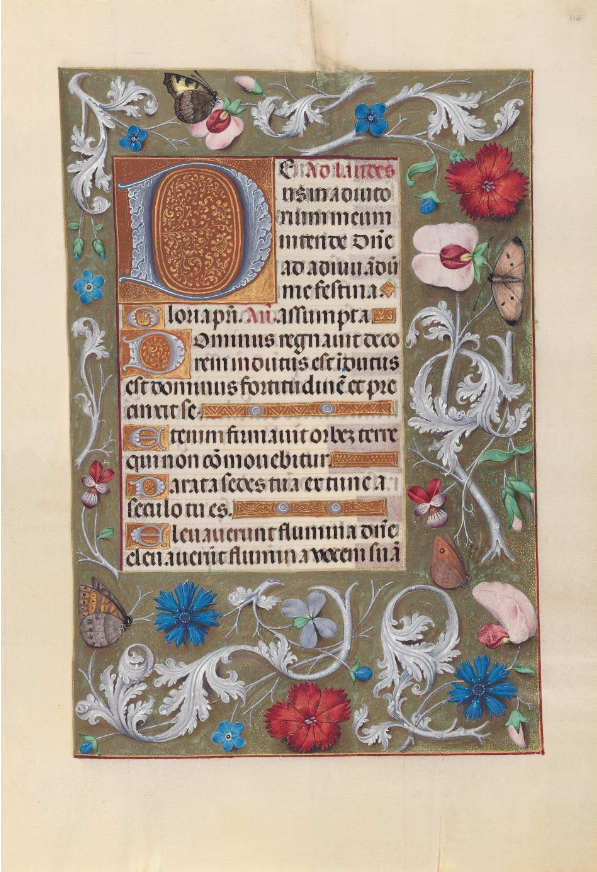 DE Ad laudes
us in adiuto
rium meum
intende Dñe
ad adiuuãdũ
me festina.
Gloria pr̃i. Añ. assumpta
Dominus regnauit deco
rem indutus est ĩdutus
est dominus fortitudinẽ et pre
cinxit se.
Etenim firmauit orbez terre
qui non cõmouebitur
Parata sedes tua ex tunc a
seculo tu es.
Eleuauerunt flumina dñe
eleuauerũt flumina vocem suã